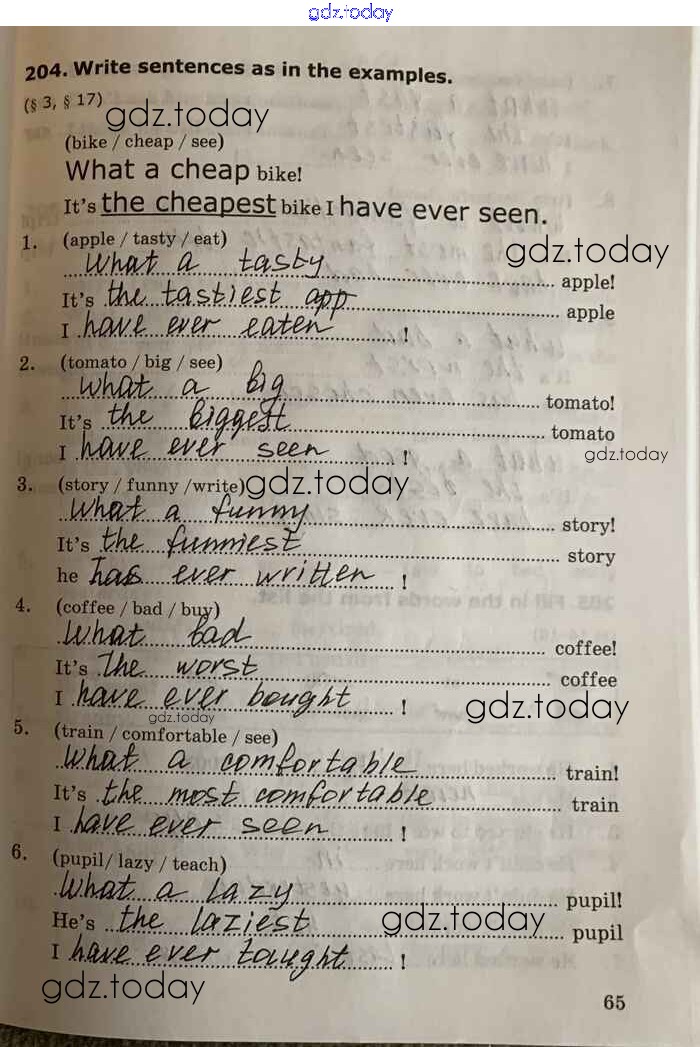 gdz.today
204. Write sentences as in the examples.
(§ 3, § 17) gdz.today
(bike / cheap / see)
What a cheap bike!
It's the cheapest bike I have ever seen.
1. (apple / tasty / eat) gdz.today
What a tasty apple!
It's the tastiest app apple
I have ever eaten !
2. (tomato / big / see)
What a big tomato!
It's the biggest tomato
I have ever seen ! gdz.today
3. (story / funny /write) gdz.today
What a funny story!
It's the funniest story
he has ever written !
4. (coffee / bad / buy)
What bad coffee!
It's the worst coffee
I have ever bought ! gdz.today
gdz.today
5. (train / comfortable / see)
What a comfortable train!
It's the most comfortable train
I have ever seen !
6. (pupil/ lazy / teach)
What a lazy pupil!
He's the laziest gdz.today pupil
I have ever taught !
gdz.today
65